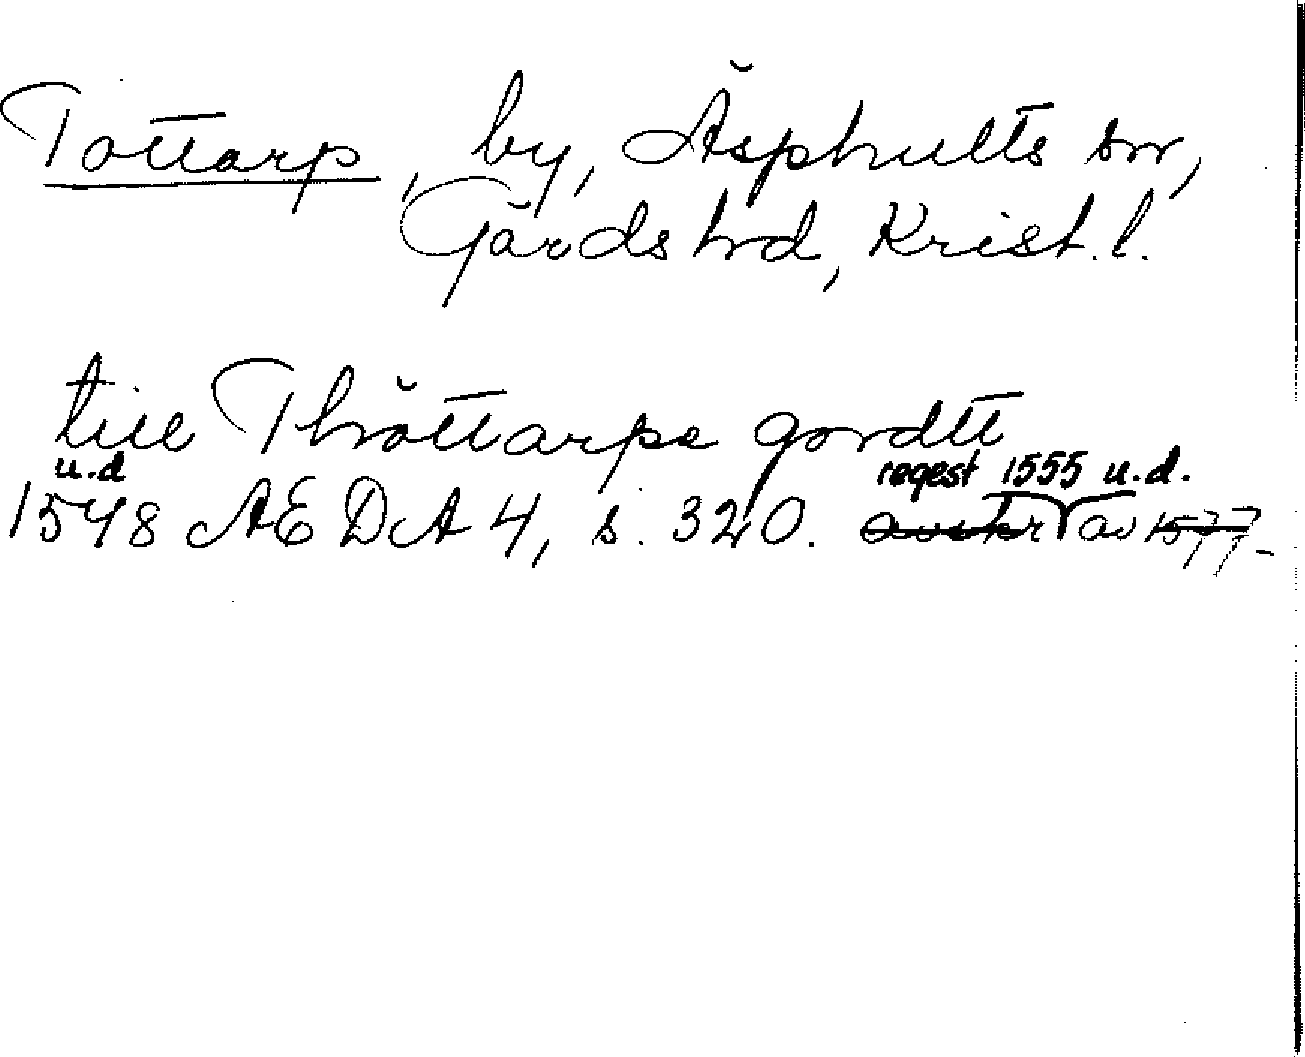 Tottarp, by, Äsphults sn,
Gärds hrd, Krist. l.
till Thottarps gordtt
u.d regest 1555 u.d.
1548 AEDA 4, s. 320. av 1577